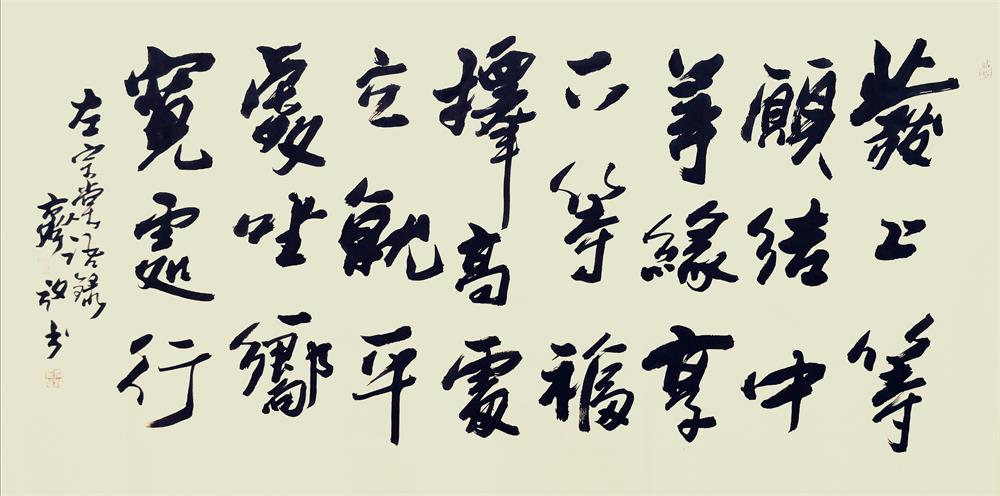 發上等
願結中
等緣享
下等福
擇高處
立就平
處坐嚮
寬處行
左宗棠语錄
书